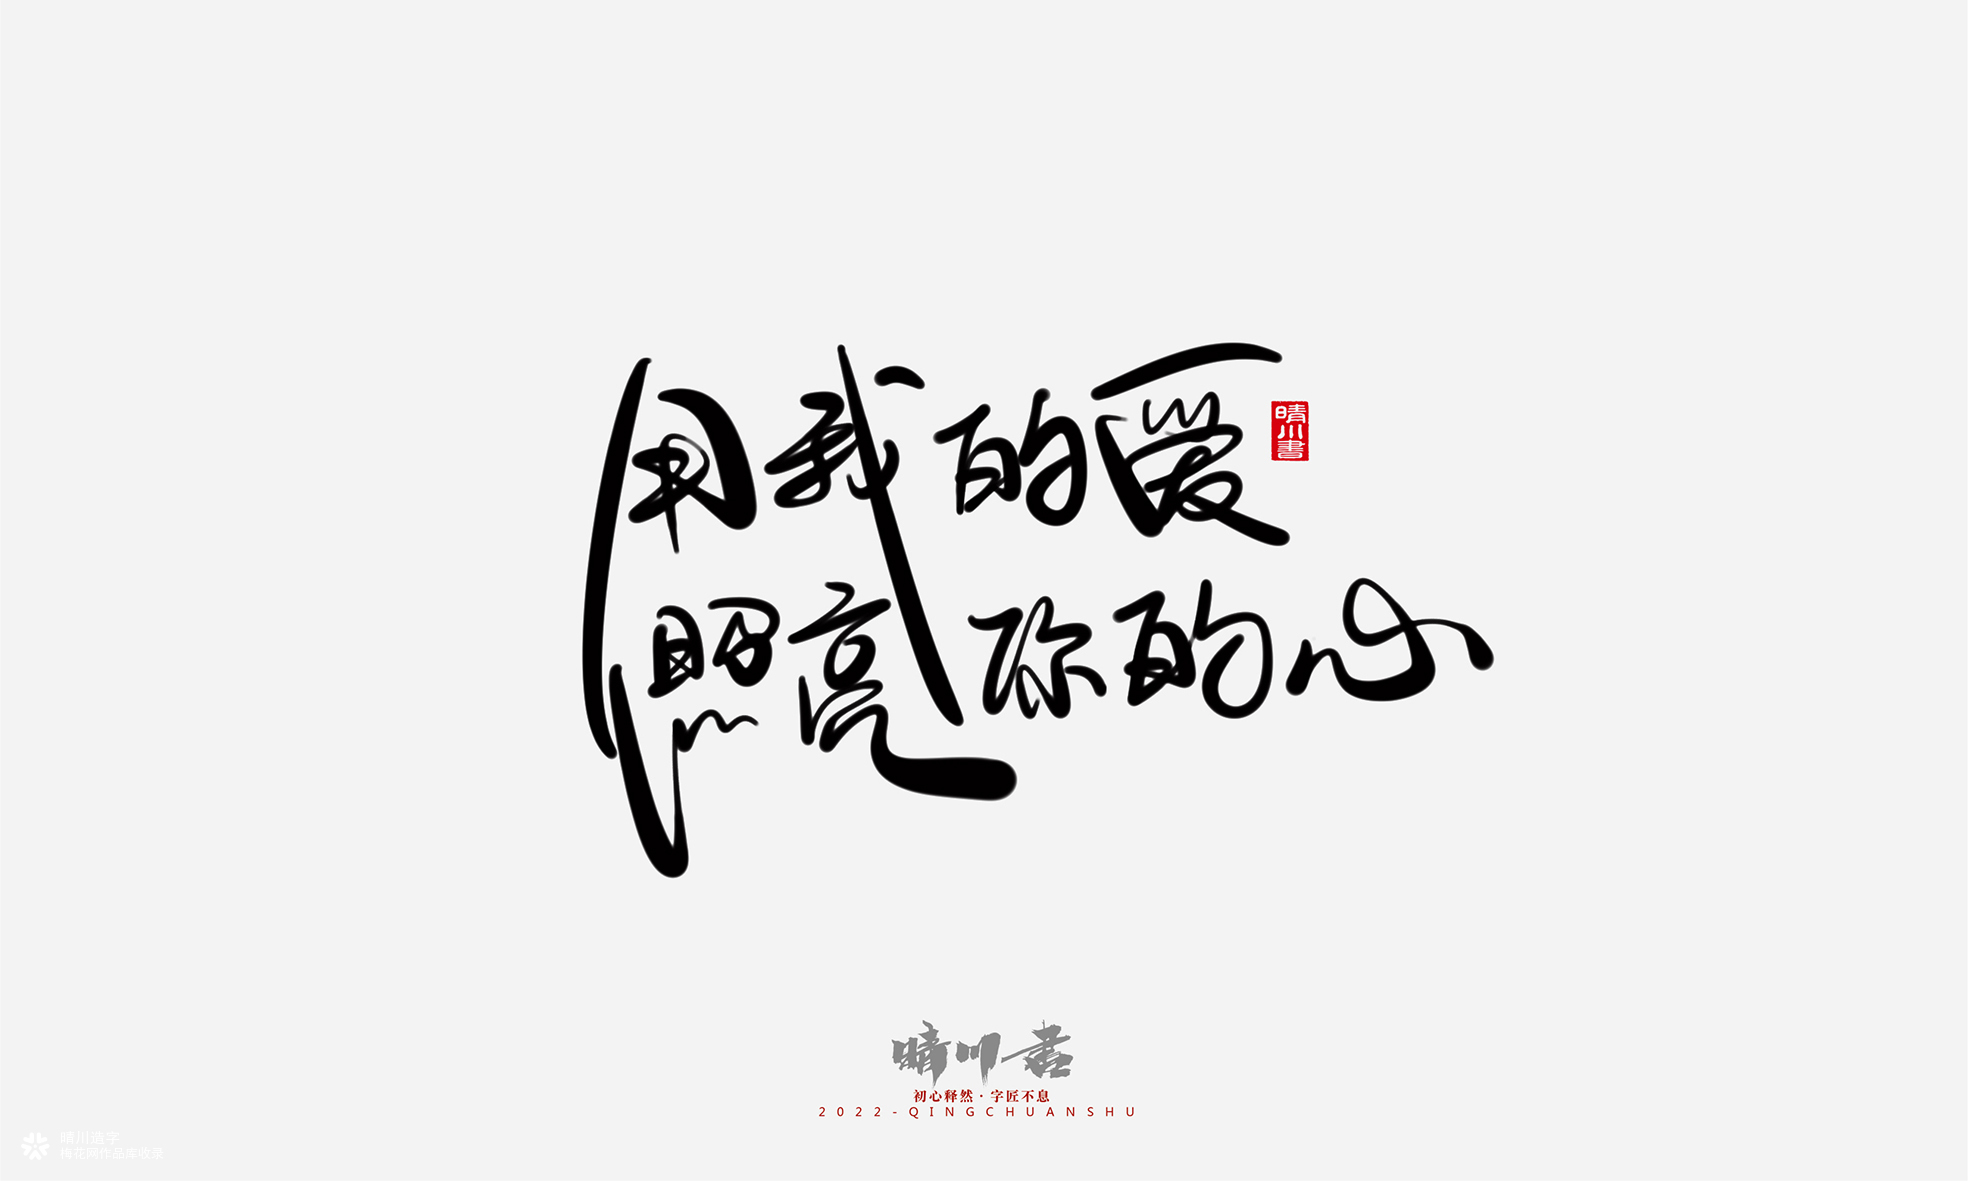 用我的爱
晴川書
照亮你的心
晴川书
初心释然·字匠不息
2022-QINGCHUANSHU
晴川造字
梅花网作品库收录